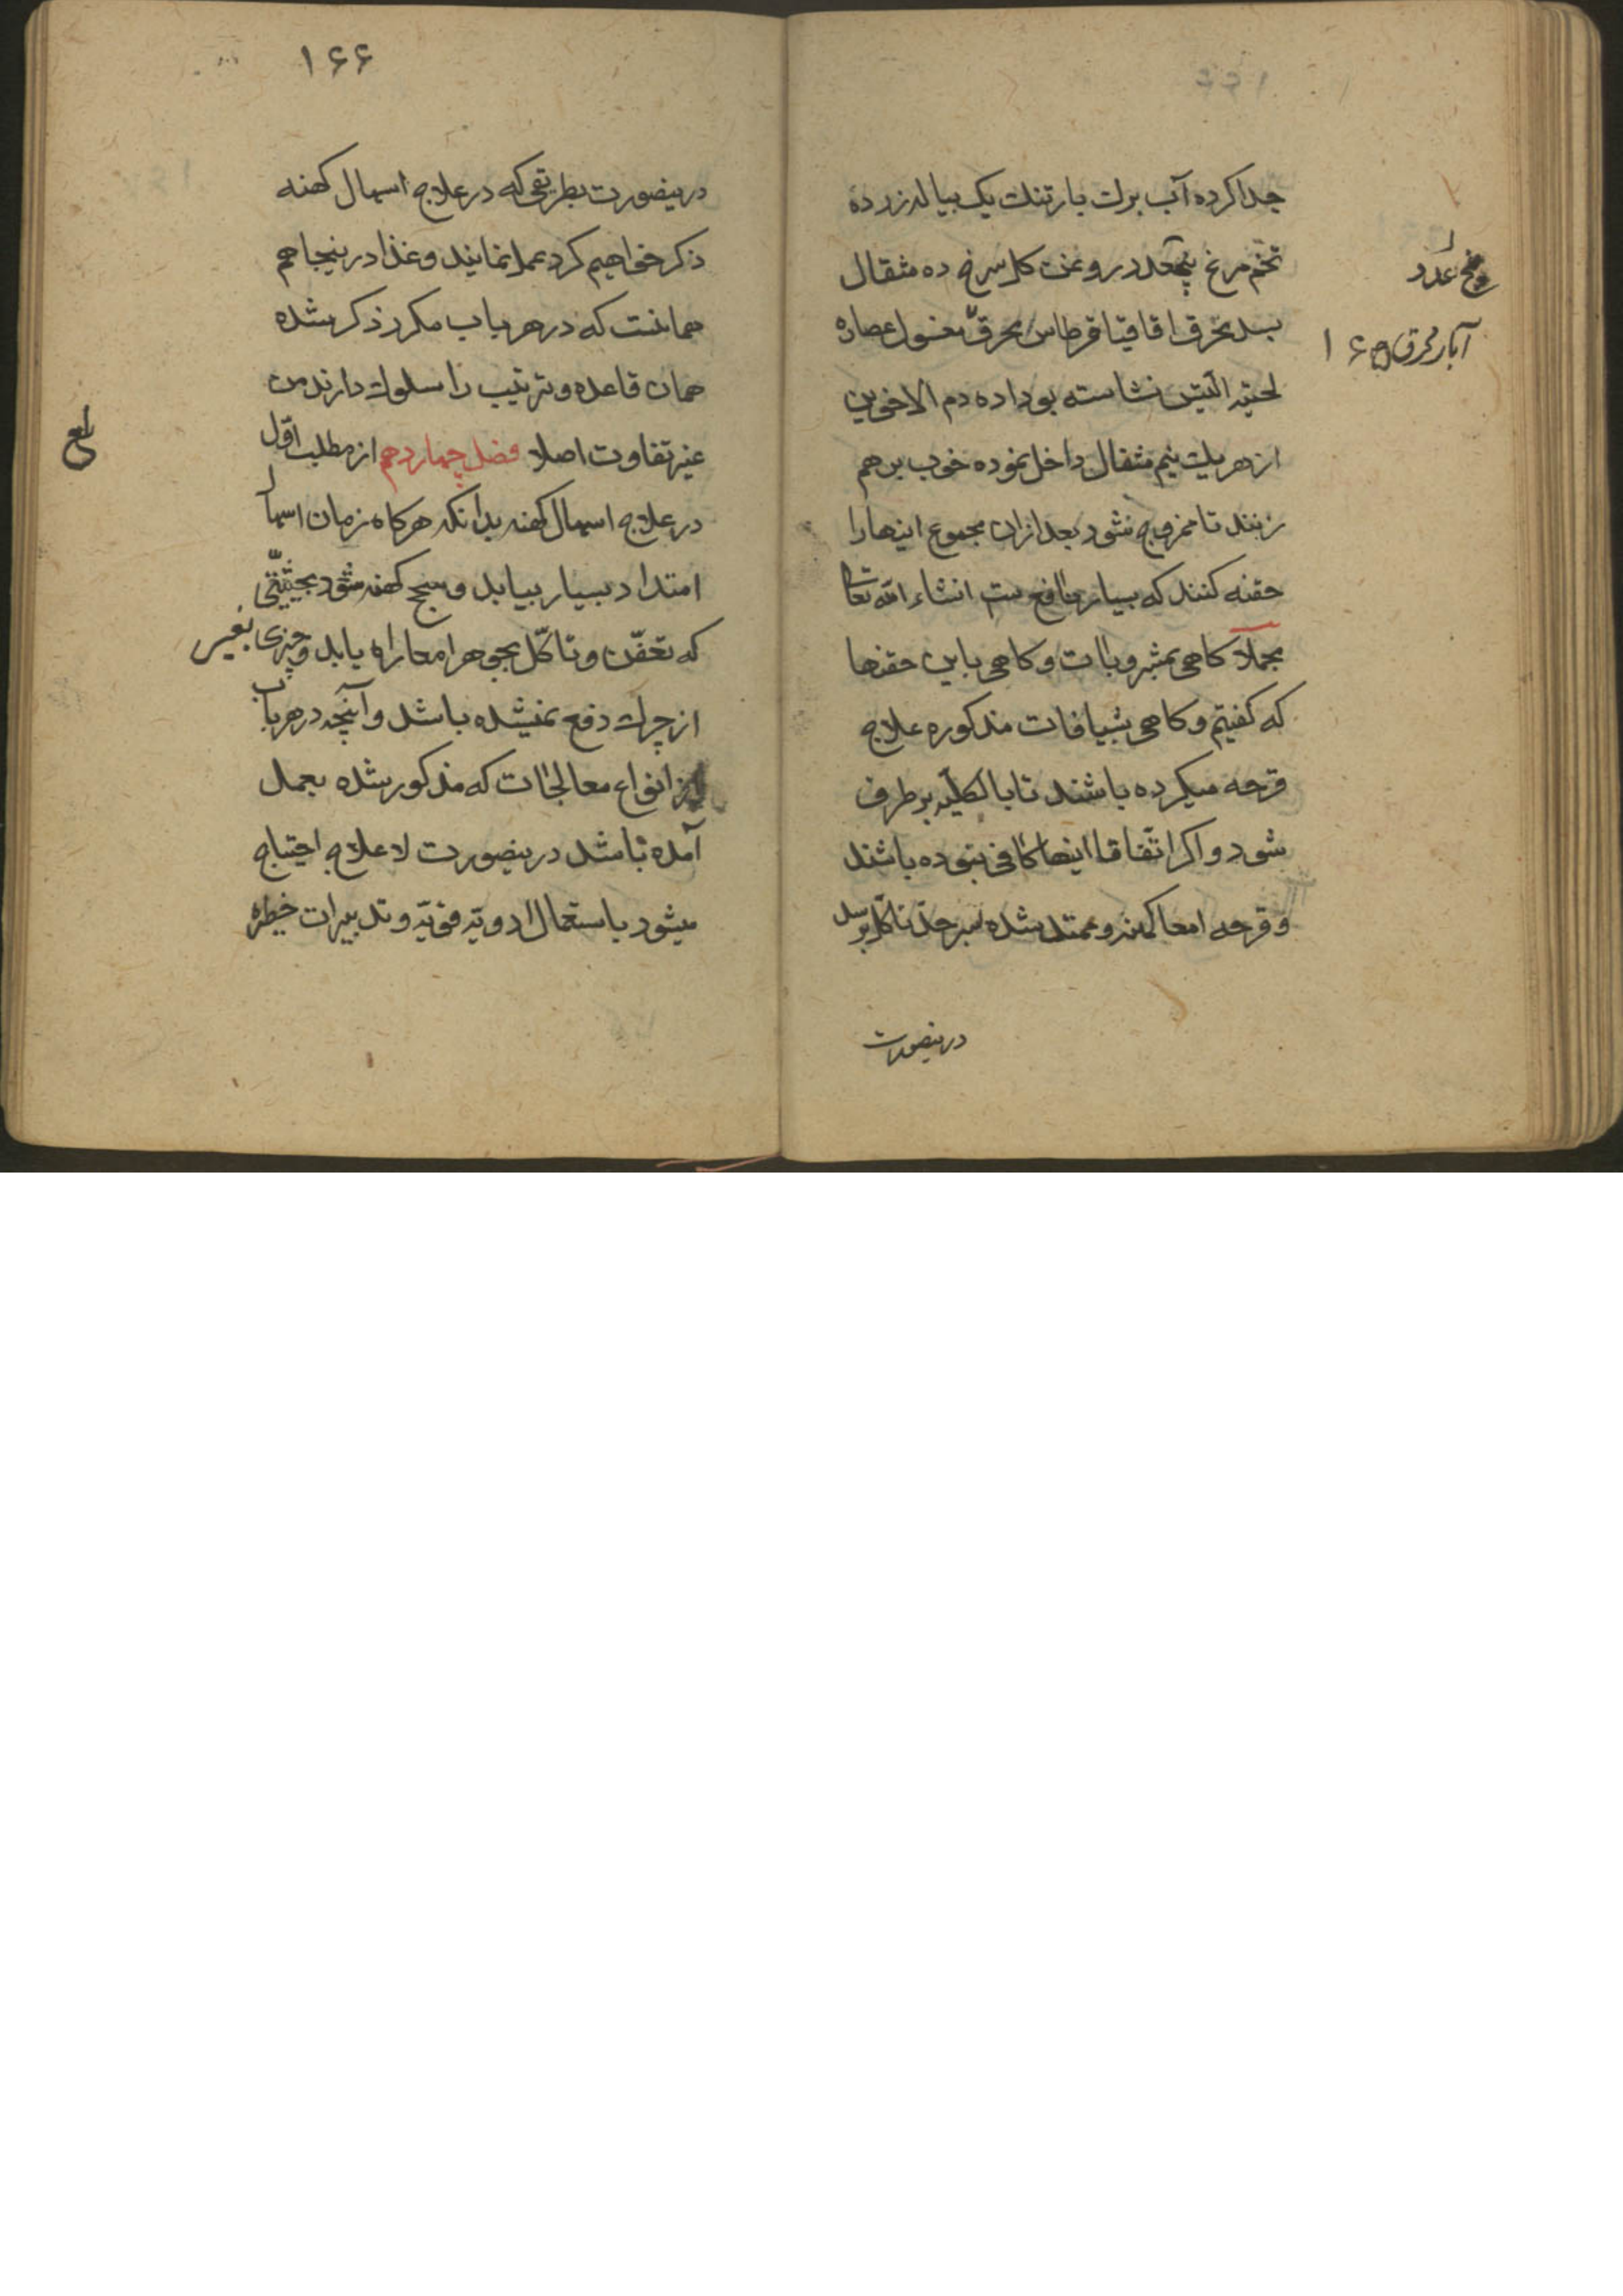 جدا کرده آب برک بارتنک یک پیاله زرده
تخم مرغ پنجعدد روغن کل سرخ ده مثقال
بسد محرق اقاقیا قرطاس محرق مغسول عصاره
لحیة التیس نشاسته بوداده دم الاخوین
از هر یک نیم مثقال داخل نموده خوب برهم
زنند تا ممزوج شود بعد ازان مجموع اینها را
حقنه کنند که بسیار نافع ست انشاء الله تعالی
مجملاً کاهی بمشروبات و کاهی باین حقنها
که کفتیم و کاهی بشیافات مذکوره علاج
قرحه میکرده باشند تا بالکلیه برطرف
شود و اکر اتفاقا اینها کافی نبوده باشند
و قرحه امعا کهنه و ممتد شده بسر حد تاکل برسد
درینصورت
عدد
آبار محرق
۱۶۶
درینصورت بطریقی که در علاج اسهال کهنه
ذکر خواهیم کرد عمل نمایند و غذا درینجا هم
همانست که در هر باب مکرر ذکر شده
همان قاعده و ترتیب را مسلوک دارند من
غیر تفاوت اصلا فصل چهاردهم از مطلب اوّل
در علاج اسهال کهنه بدانکه هرکاه زمان اسهال
امتداد بسیار بیابد و سحج کهنه شود بحیثیّتی
که تعفّن و تاکّل بجوهر امعا راه یابد و چیزی بغیر
از چرک دفع نمیشده باشد و آنچه در هر باب
از انواع معالجات که مذکور شده بعمل
آمده باشد درینصورت لاعلاج احتیاج
میشود باستعمال ادویه قویّه و تدبیرات خطیره